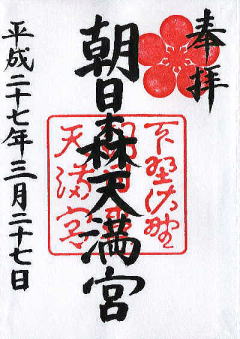 奉拝
朝日森天満宮
下野佐野
朝日森
天満宮
平成二十七年三月二十七日